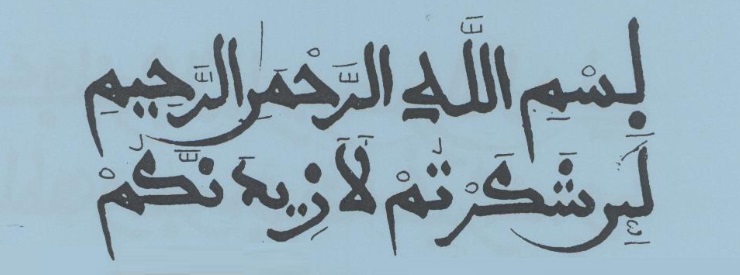 بِسْمِ اللَّهِ الرَّحْمَٰنِ الرَّحِيمِ
لَئِن شَكَرْتُمْ لَأَزِيدَنَّكُمْ